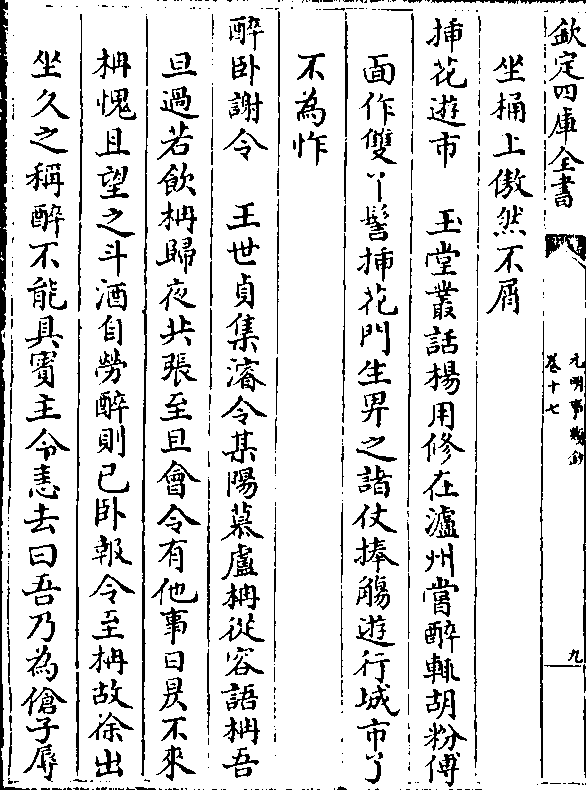 欽定四庫全書
元明事類鈔
卷十七
九
坐桶上傲然不屑
揷花遊市　玉堂叢話楊用修在瀘州嘗醉輒胡粉傅
面作雙丫髻揷花門生舁之諸伎捧觴遊行城市了
不為怍
醉卧謝令　王世貞集濬令某陽慕盧柟從容語柟吾
旦過若飲柟歸夜共張至旦會令有他事日昃不來
柟愧且望之斗酒自勞醉則已卧報令至柟故徐出
坐久之稱醉不能具賓主令恚去曰吾乃為傖子辱